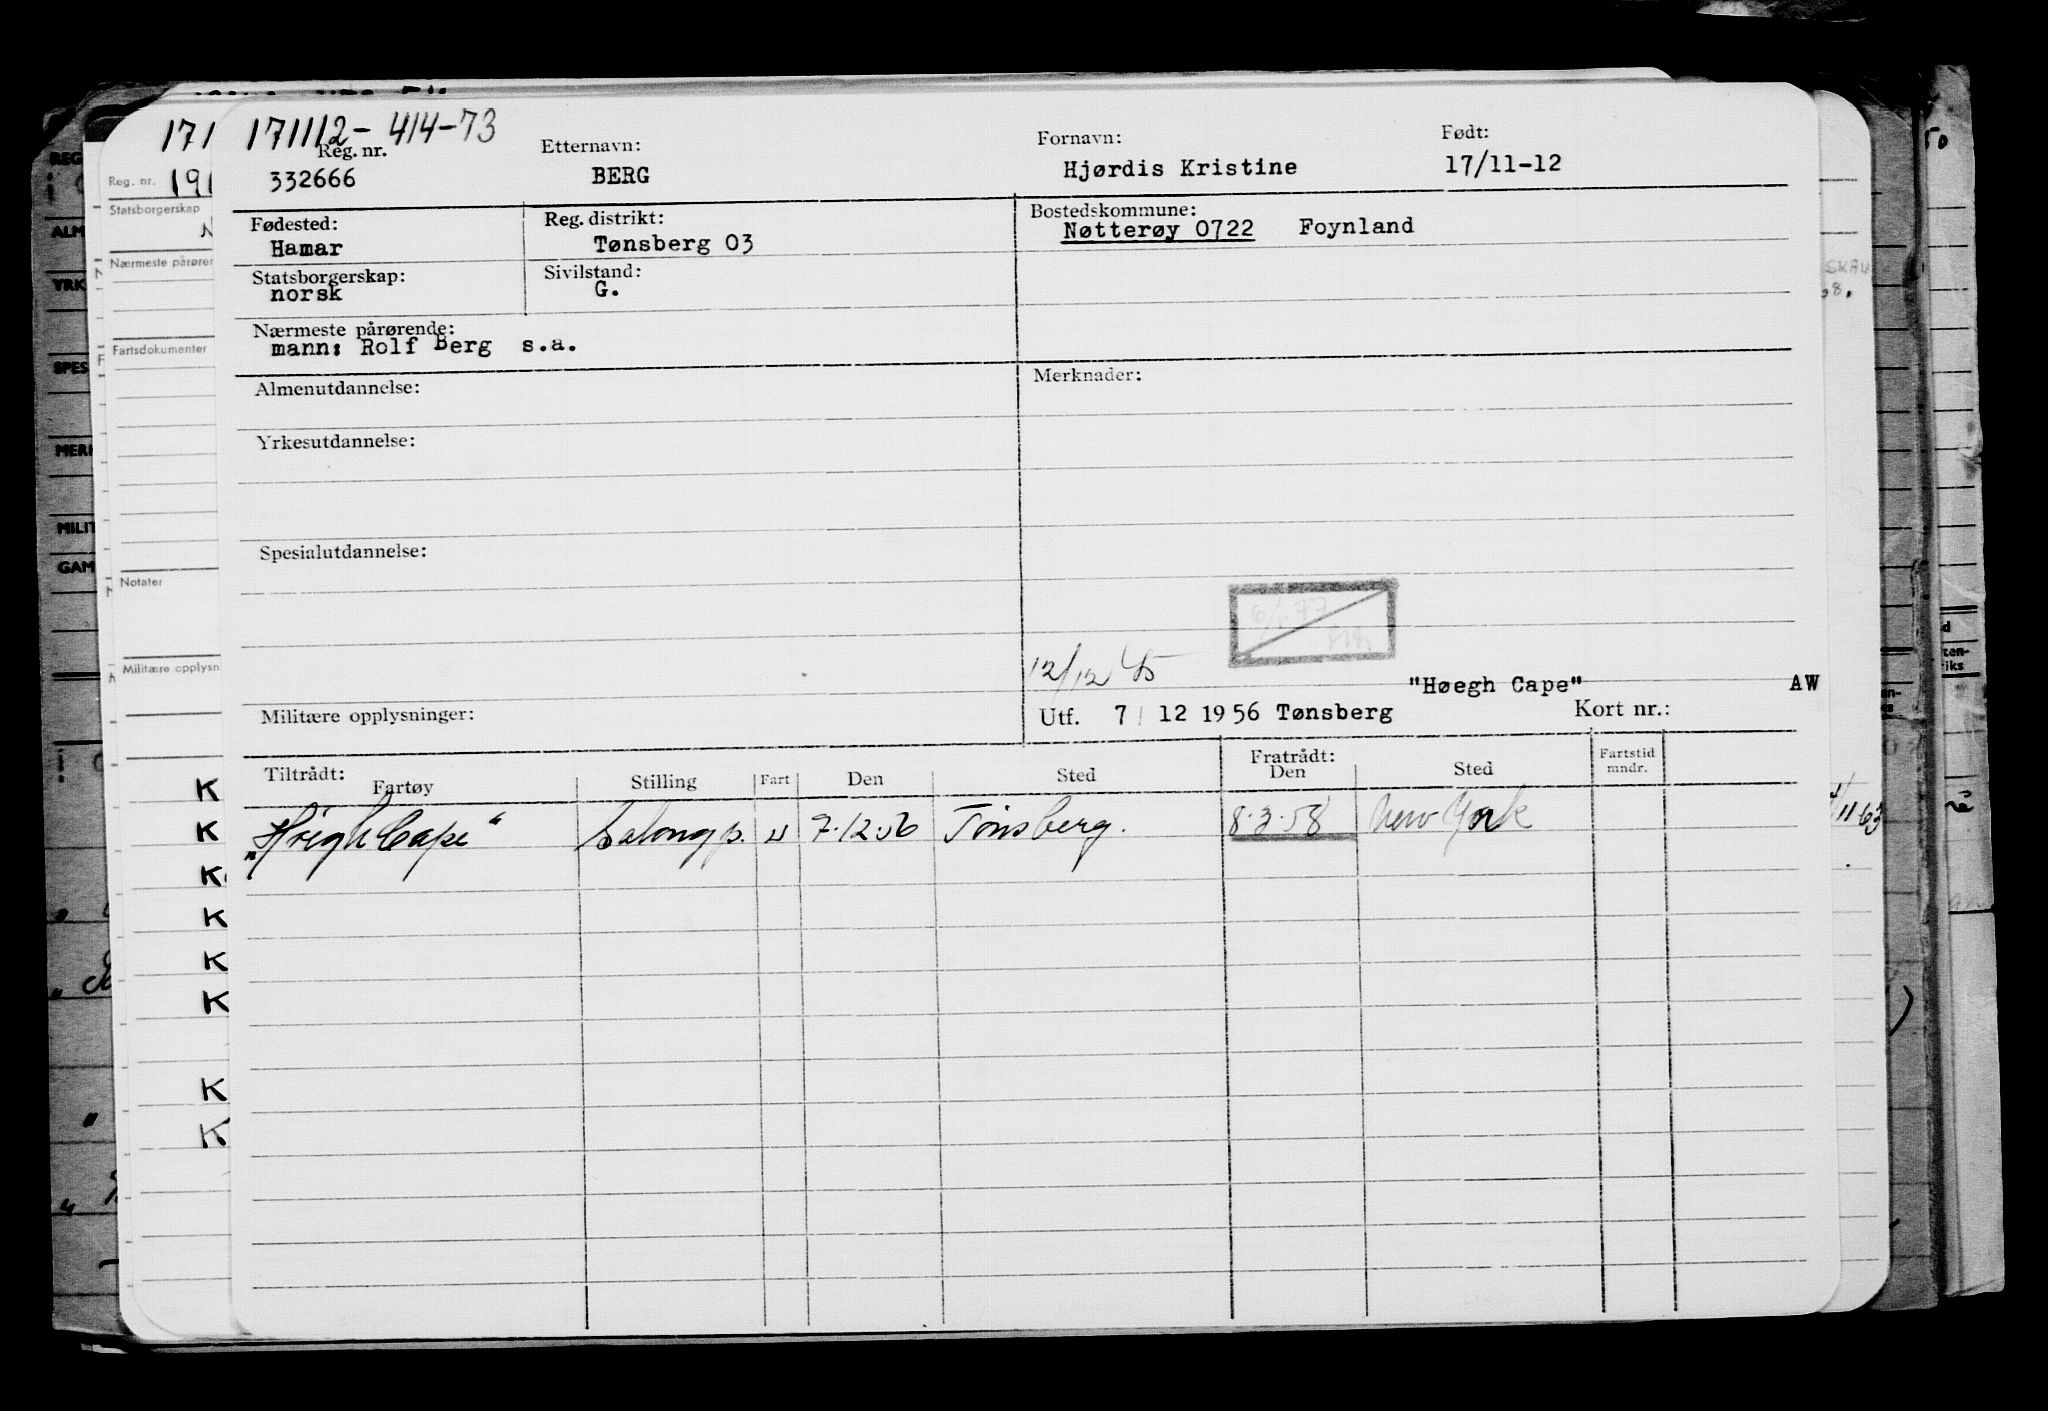 171112-414-73
Reg. nr. Etternavn: Fornavn: Født:
332666 BERG Hjørdis Kristine 17/11-12
Fødested: Reg. distrikt: Bostedskommune:
Hamar Tønsberg 03 Nøtterøy 0722 Foynland
Statsborgerskap: Sivilstand:
norsk G.
Nærmeste pårørende:
mann: Rolf Berg s.a.
Almenutdannelse: Merknader:
Yrkesutdannelse:
Spesialutdannelse:
12/12 45
"Høegh Cape" AW
Militære opplysninger: Utf. 7/12 1956 Tønsberg Kort nr.:
Tiltrådt: Fratrådt: Fartstid
Fartøy Stilling Fart Den Sted Den Sted mndr.
"Høegh Cape" Salongp. u 7.12.56 Tønsberg. 8.3.58 New York
171
Reg. nr. 191
Statsborgerskap
Nærmeste pårører
Fartsdokumenter
Notater
Militære opplysn
K
K
K
K
K
K
K
K
REG
ALM
YRK
SPES
MERK
MILIT
GAM
11 63